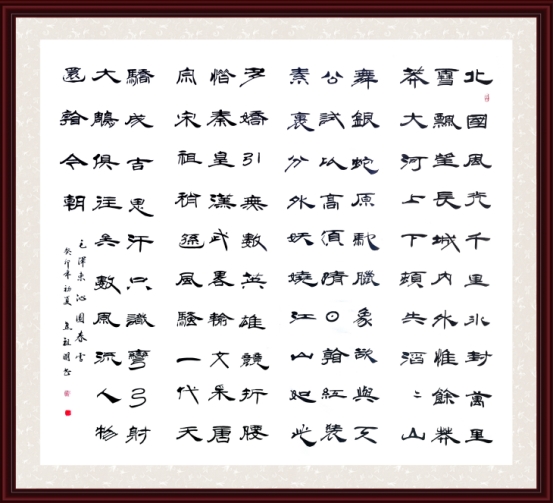 北國風光千里冰封萬里
雪飄望長城內外惟餘莽
莽大河上下頓失滔〻山
舞銀蛇原馳臘象欲與天
公試比高須晴日看紅裝
素裹分外妖嬈江山如此
多嬌引無數英雄競折腰
惜秦皇漢武略輸文采唐
宗宋祖稍遜風騷一代天
驕成吉思汗只識彎弓射
大鵰俱往矣數風流人物
還看今朝
毛澤東沁園春雪
癸卯年初夏